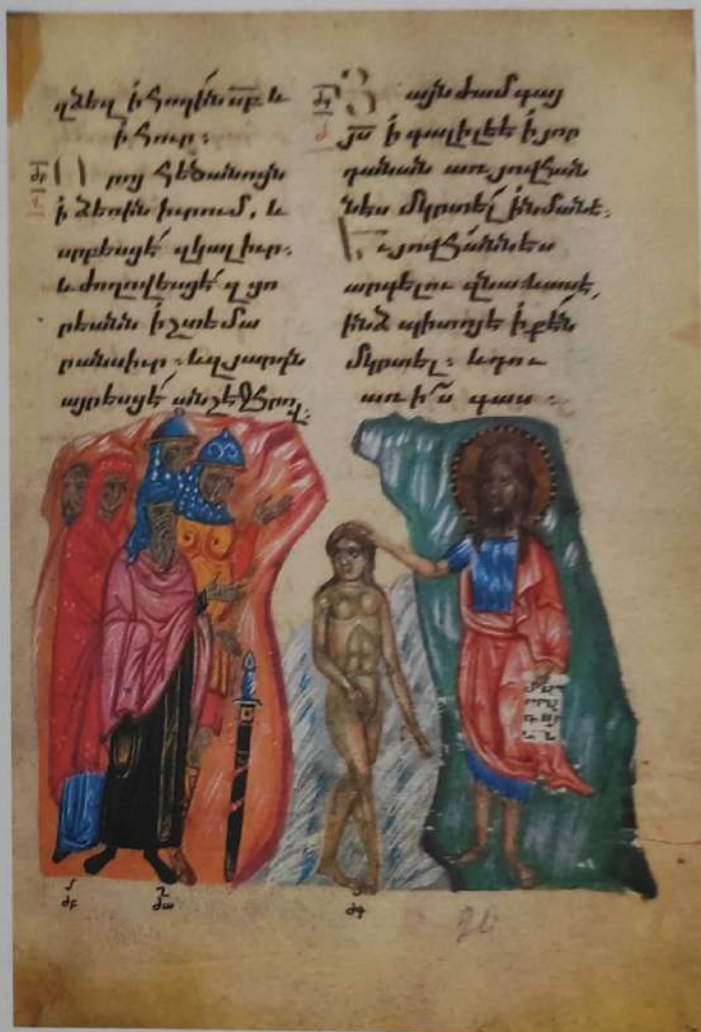 զձեզ ի հոգին սբ և
ի հուր։
ժբ Որոյ հեծանոցն
ի ձեռին իւրում, և
սրբեսցէ զկալ իւր.
և ժողովեսցէ զցո
րեանն ի շտեմա
րանս իւր. և զյարդն
այրեսցէ անշէջ հրով։
ժգ Յայնժամ գայ
յս ի գալիլեէ ի յոր
դանան առ յովհան
նես մկրտել ի նմանէ.
Եւ յովհաննես
արգելու զնա և ասէ,
ինձ պիտոյ է ի քէն
մկրտել. և դու
առ ի՞ս գաս.
ժբ ժա ժգ